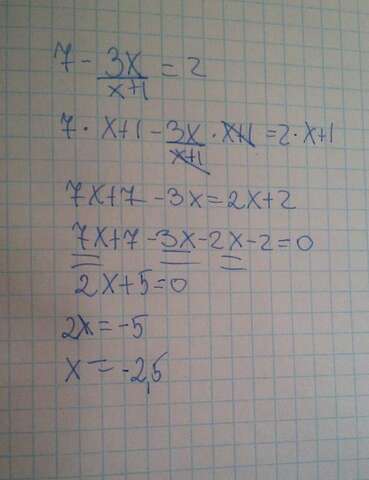 7 - 3x/x+1 = 2
7 · x+1 - 3x/x+1 · x+1 = 2 · x+1
7x+7 - 3x = 2x+2
7x+7 - 3x - 2x - 2 = 0
2x + 5 = 0
2x = -5
x = -2,5